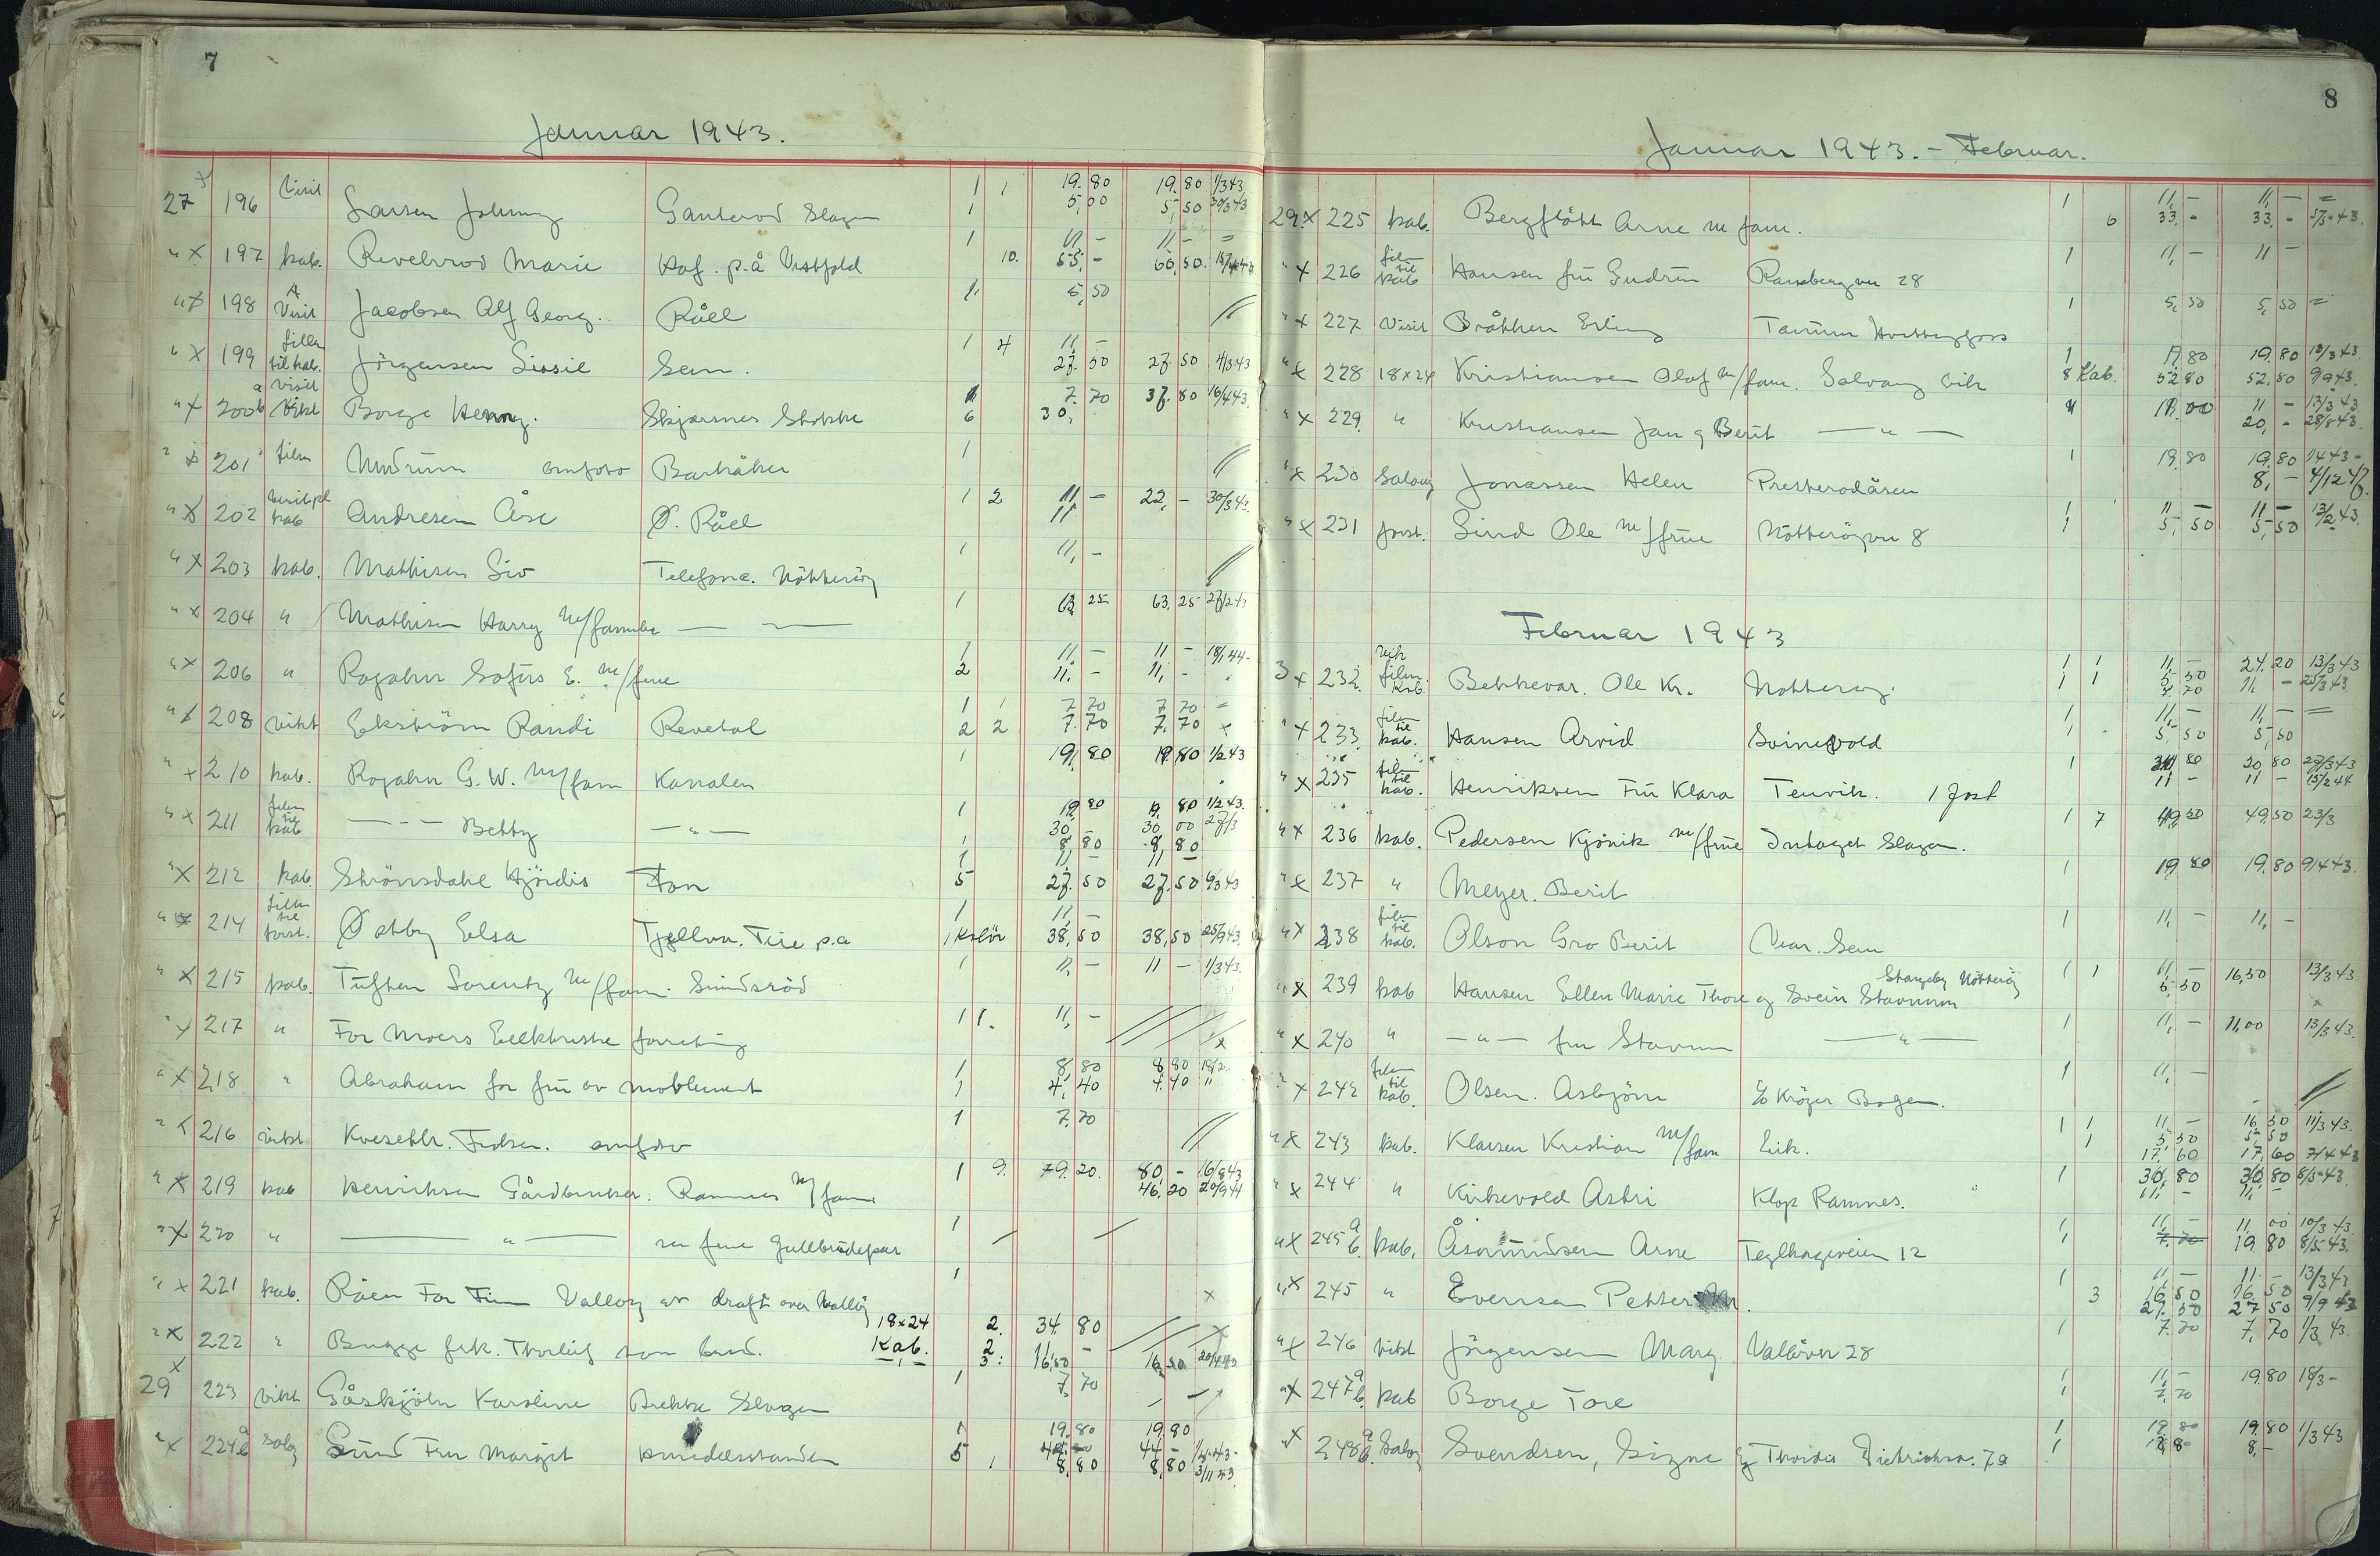 7
Januar 1943.
27 x 196 Visit Larsen Johnny Ganterød Slagen 1 1 19.80 19.80 1/3 43
1 5,50 5,50
" x 197 kab. Revelrød Marie Kaf. p.å Vestfold 1 10. 11 - 11 - =
55,- 60,50.
" x 198 Visit Jacobsen Alf Georg. Råel 1 5,50
" x 199 film til kab. Jörgensen Sissil Sem. 1 4 11,-
27.50 27.50 4/3 43
" x 200 a b Visit Vikt Borge Henny. Skjærsnes Stokke 1 7.70 37.80 16/4 43.
6 30,
" x 201 film Undrum omfoto Barkåker 1
" x 202 kab Andresen Åse Ø. Råel 1 2 11,- 22,- 30/3 43.
11
" x 203 kab. Mathisen Siv Telefonc. Nötteröy 1 11,-
" x 204 " Mathisen Harry m/familie — — 1 63,25 63,25
" x 206 " Rogahn Sofus E. m/frue 1 11,- 11 - 18/1 44-
2 11.- 11,-
" x 208 vikt Ekström Randi Revetal 1 1 7.70 7.70 =
2 2 7.70 7.70 x
" x 210 kab. Rogahn G. W. m/fam Kanalen 1 19,80 19,80 1/2 43
" x 211 film til kab — - - — Betty — " — 1 19,80 19,80 1/2 43.
30,- 30,00 27/3
1 8,80 8,80
" x 212 kab. Strömsdahl Hjördis Ton 1 11,- 11 -
5 27.50 27.50 6/3 43
" x 214 film til Østby Elsa Tjøllin. Tire p.a 1 11,-
38,50 38,50 25/9 43.
" x 215 kab. Tuften Lorentz m/fam. Sundsröd 1 11,- 11 - 1/3 43.
" x 217 " For Moers Eelktriske forretning 1 1. 11,-
" x 218 " Abraham for fru av moblement 1 8,80 8,80
1 4,40 4,40 "
" x 216 vikt omfoto 1 7.70
" x 219 kab Henriksen Gårdbruker. Ramnes m/fam 1 9. 79.20. 80,- 16/8 43
46,20 20/9 44
" x 220 " — " — m frue Gullbrudepar 1
" x 221 kab. Råen For Firm Valløy av draft over Valløy 1 x
" x 222 " Bugge frk. Thorleif som brud. 18x24 2. 34.80
Kab. 2 11 -
3: 16,50 16,50
29 x 223 vikt Gåskjöln Karoline Brekke Slagen 1 7,70
" x 224 a b Salong Sund Fru Margit 1 19.80 19.80
5 44 -
8,80 8,80 3/11 43.
8
Januar 1943. - Februar.
29. x 225 kab. Bergflött Arne m fam. 1 11,- 11,- =
6 33.- 33.-
" x 226 film til kab Hansen fru Gudrun Ramsbergvn 28 1 11,- 11 -
" x 227 Visit Bråkken Erling Tamum Hvittingfoss 1 5,50 5,50 =
" x 228 18x24 Kristiansen Olaf m/fam. Solvang Eik 1 19.80 19.80 13/3 43.
8 Kab. 52.80 52.80 9/9 43.
" x 229. " Kristiansen Jan og Berit — " — 11 - 13/3 43
20,- 28/8 43.
" x 230 Salong Jonassen Helen Presterödåsen 1 19.80 19.80
8,- 4/12 43
" x 231 post. Lind Ole m/frue Nötteröyvn 8 1 11 - 11 - 13/2 43.
1 5,50 5,50
Februar 1943
3 x 232. vikt film. kab. Bekkevar. Ole Kr. Nötteröy. 1 1 11,- 24.20 13/3 43
1 1 5,50 11,- 25/3 43.
7,70
" x 233. film til kab. Hansen Arvid Svinevold 1 11,- 11,- =
1 5,50 5,50
" x 235 film til kab. Henriksen Fru Klara Tenvik. 1 post 1 20 80 27/3 43
11 - 11 - 15/2 44
" x 236 kab. Pedersen Kjönik m/frue Intaget Slagen. 1 7 49,50 49,50 23/3
" x 237 " Meyer. Berit 1 19,80 19.80 9/4 43.
" x 238 film til kab. Olson Gro Berit Vear. Sem 1 11,- 11,-
" x 239 kab Hansen Ellen Marie Thore og Svein Stavnum Stangeby Nötteröy 1 1 11,- 16,50 13/3 43
5,50
" x 240 " — " — fru Stavnum — " — 1 11,- 11,00 13/3 43.
" x 242 film til kab. Olsen. Asbjörn c/o Kröger Bogen. 1 11,-
" x 243 kab. Klausen Kristian m/fam Eik. 1 1 11 - 16 50 11/3 43.
1 5,50 5,50
17,60 17,60 7/4 43
" x 244 " Kirkevold Astri Klop Ramnes. 1 30,80 30,80 8/5 43.
11,- 11,-
" x 245 a b. kab. Åsmundsen Arne Teglhageveien 12 1 11,- 11,00 10/3 43.
1 7.70 19 80 8/5 43.
" x 245 " Evensen Petter 1 11 - 11.- 13/3 43
3 16,50 16,50 9/9 43
27.50 27 50
" x 246 vikt Jörgensen Marg Vallöveien 28 1 7.70 7,70 1/3 43.
" x 247 a b. kab Borge Tore 1 11,- 19.80 18/3 -
1 7,70
" x 248 a b. Salong Svendsen, Signe og Thordis Dietrichsv. 7a 1 19.80 19.80 1/3 43
1 8,-